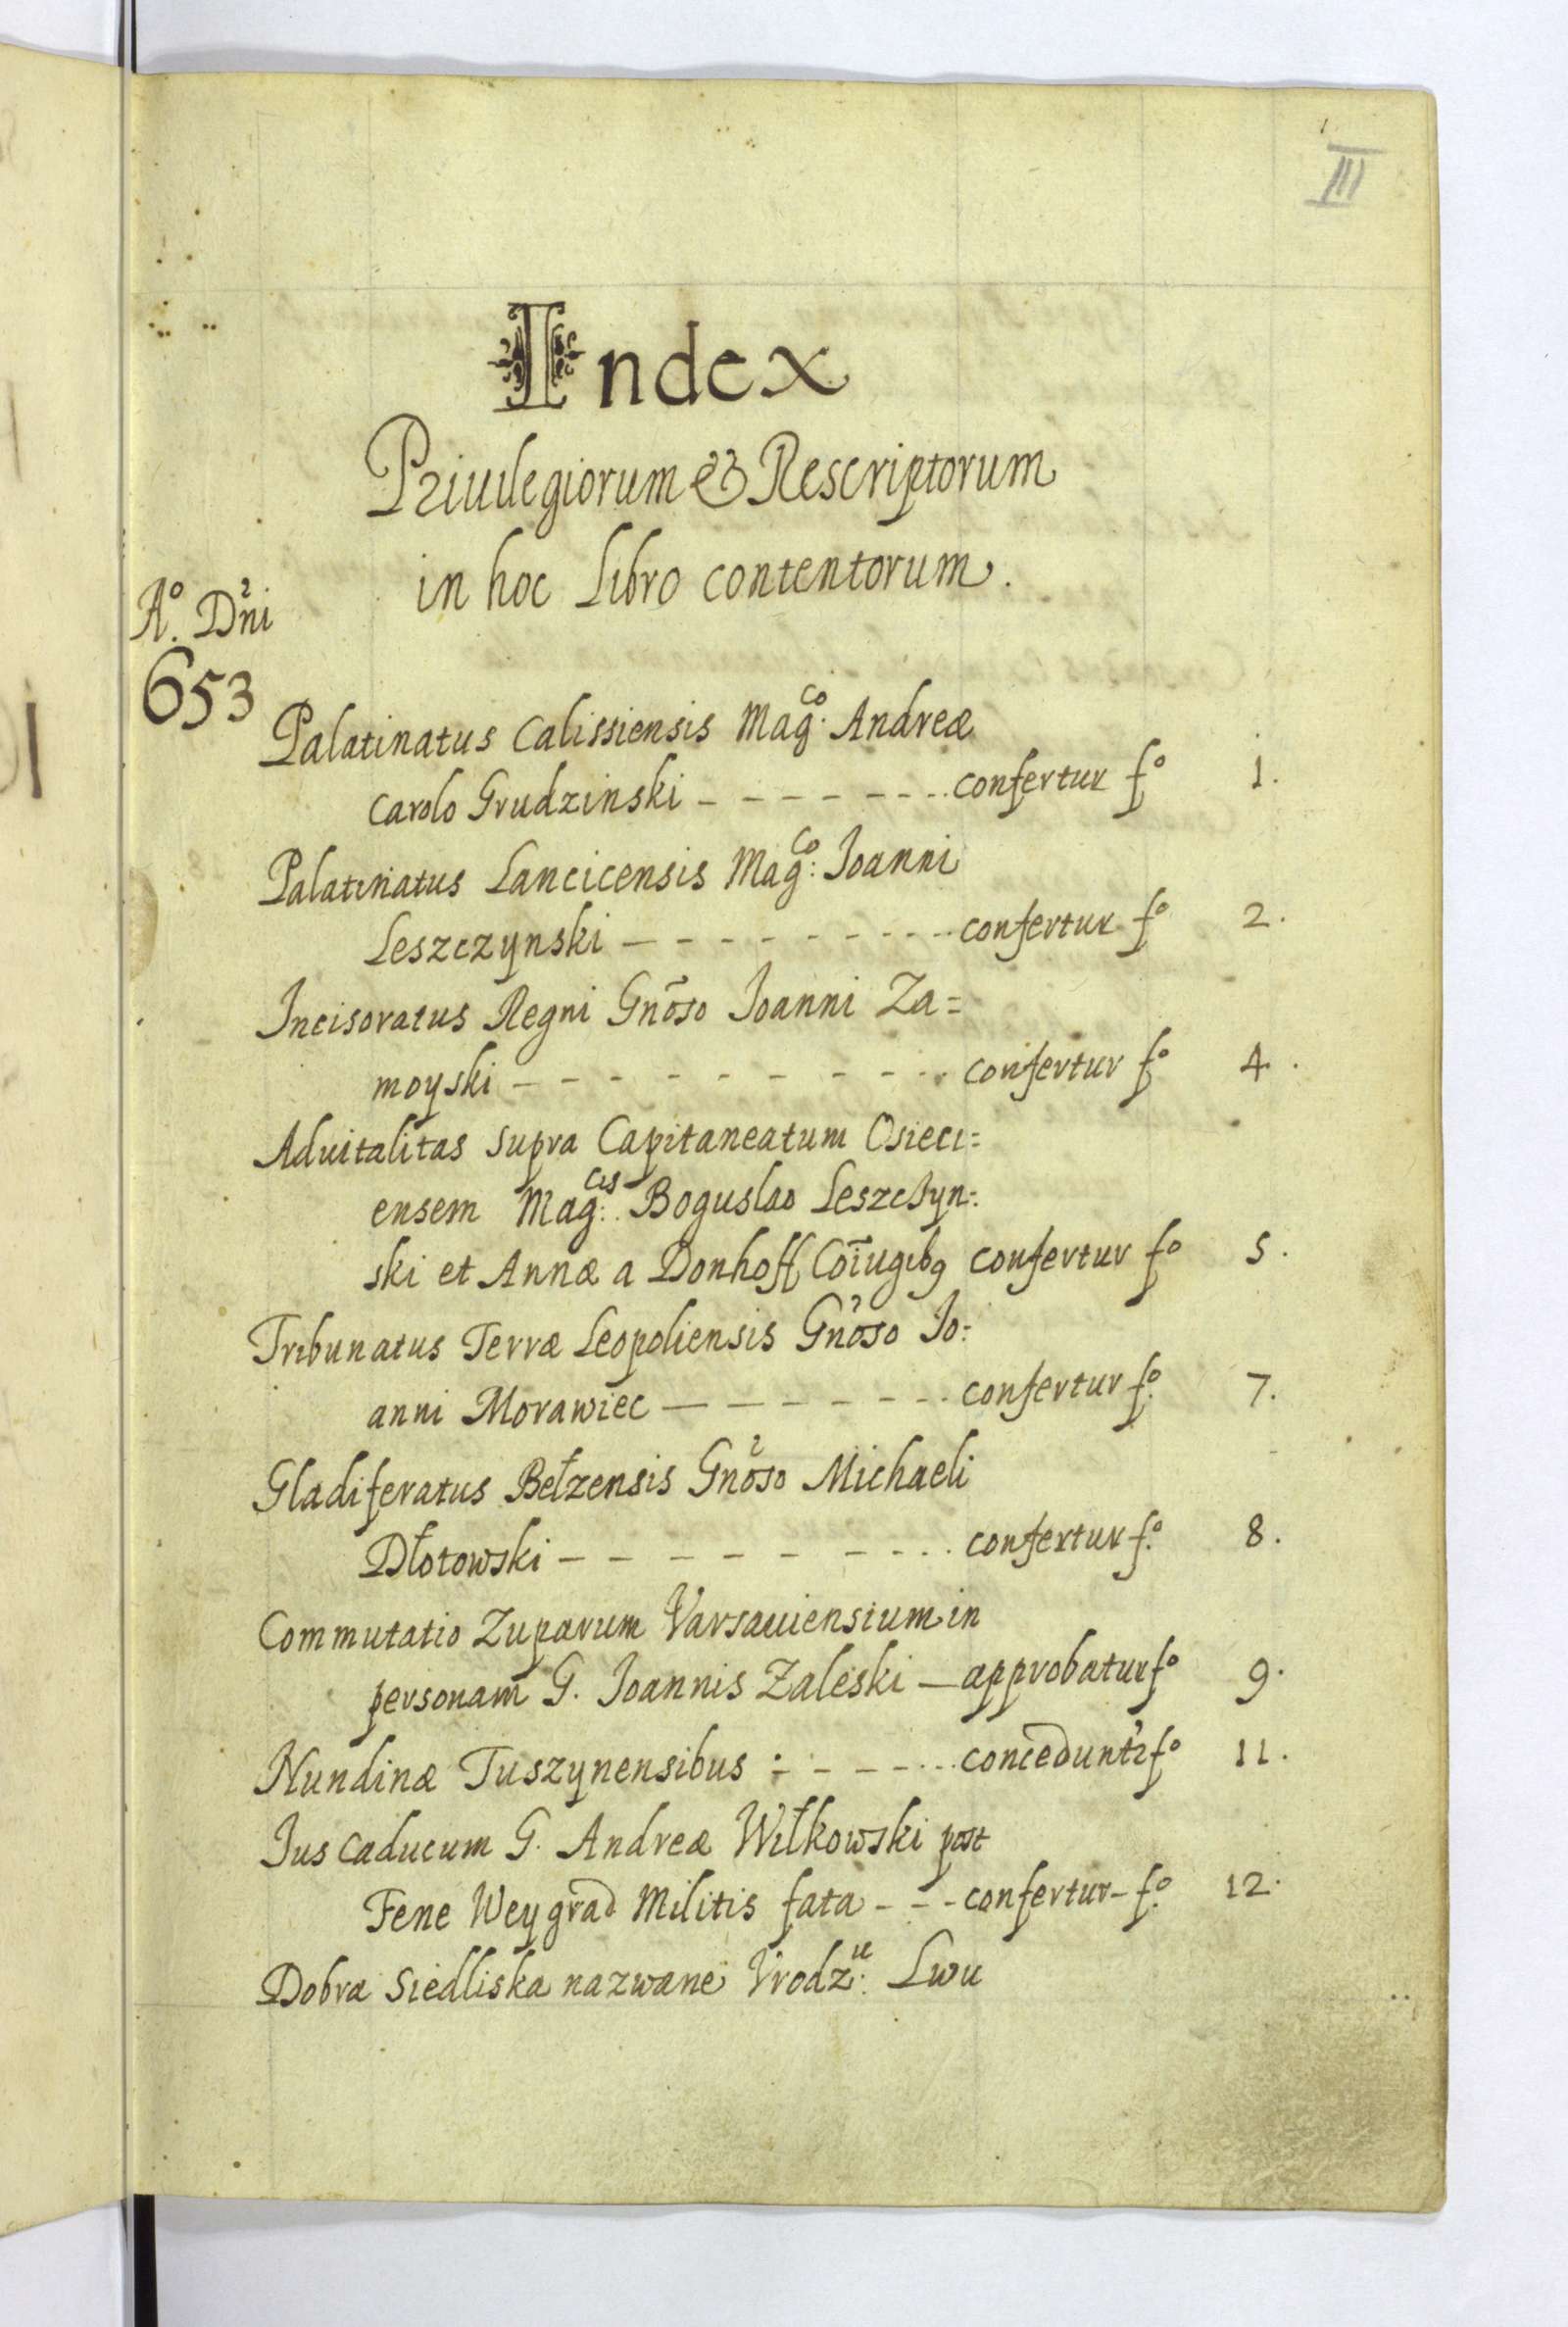 III
Index
Priuilegiorum & Rescriptorum
in hoc Libro contentorum.
Aº. Dni
653
Palatinatus Calissiensis Mag:co Andreæ
Carolo Grudzinski - - - - - - - - confertur fº 1.
Palatinatus Lancicensis Mag:co Joanni
Leszczynski - - - - - - - - - confertur fº 2.
Incisoratus Regni Gnõso Joanni Za=
moyski - - - - - - - - - - confertur fº 4.
Aduitalitas supra Capitaneatum Osieci=
ensem Mag:cis Boguslao Leszczyn=
ski et Annæ a Donhoff Coĩugibq confertur fº 5.
Tribunatus Terræ Leopoliensis Gnõso Jo=
anni Morawiec - - - - - - - confertur fº. 7.
Gladiferatus Bełzensis Gnõso Michaeli
Dłotowski - - - - - - - - - confertur fº. 8.
Commutatio Zuparum Varsauiensium in
personam G. Joannis Zaleski - approbatur fº 9.
Nundinæ Tuszynensibus : - - - - - conceduntr fº 11.
Jus Caducum G. Andreæ Wiłkowski post
Fene Weygrad Militis fata - - - confertur - fº. 12.
Dobra Siedliska nazwane Vrodz:u Lwu